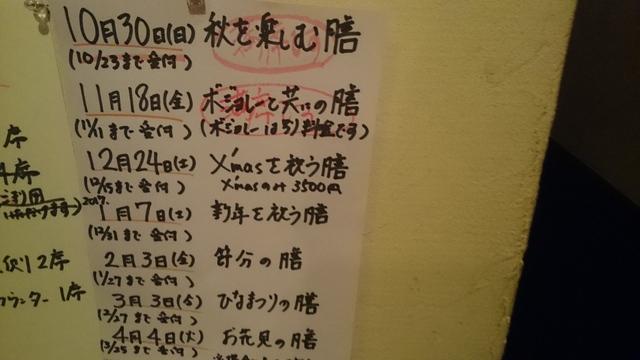 10月30日(日) 秋を楽しむ膳
(10/23まで受付)
11月18日(金) ボジョレーと共にの膳
(11/11まで受付) (ボジョレーは別料金です)
12月24日(土) X'masを祝う膳
(12/15まで受付) X'masのみ3500円
2017.
1月7日(土) 新年を祝う膳
(12/31まで受付)
2月3日(金) 節分の膳
(1/27まで受付)
3月3日(金) ひなまつりの膳
(2/27まで受付)
4月4日(火) お花見の膳
(3/25まで受付)
席
4席
2席
カウンター 1席